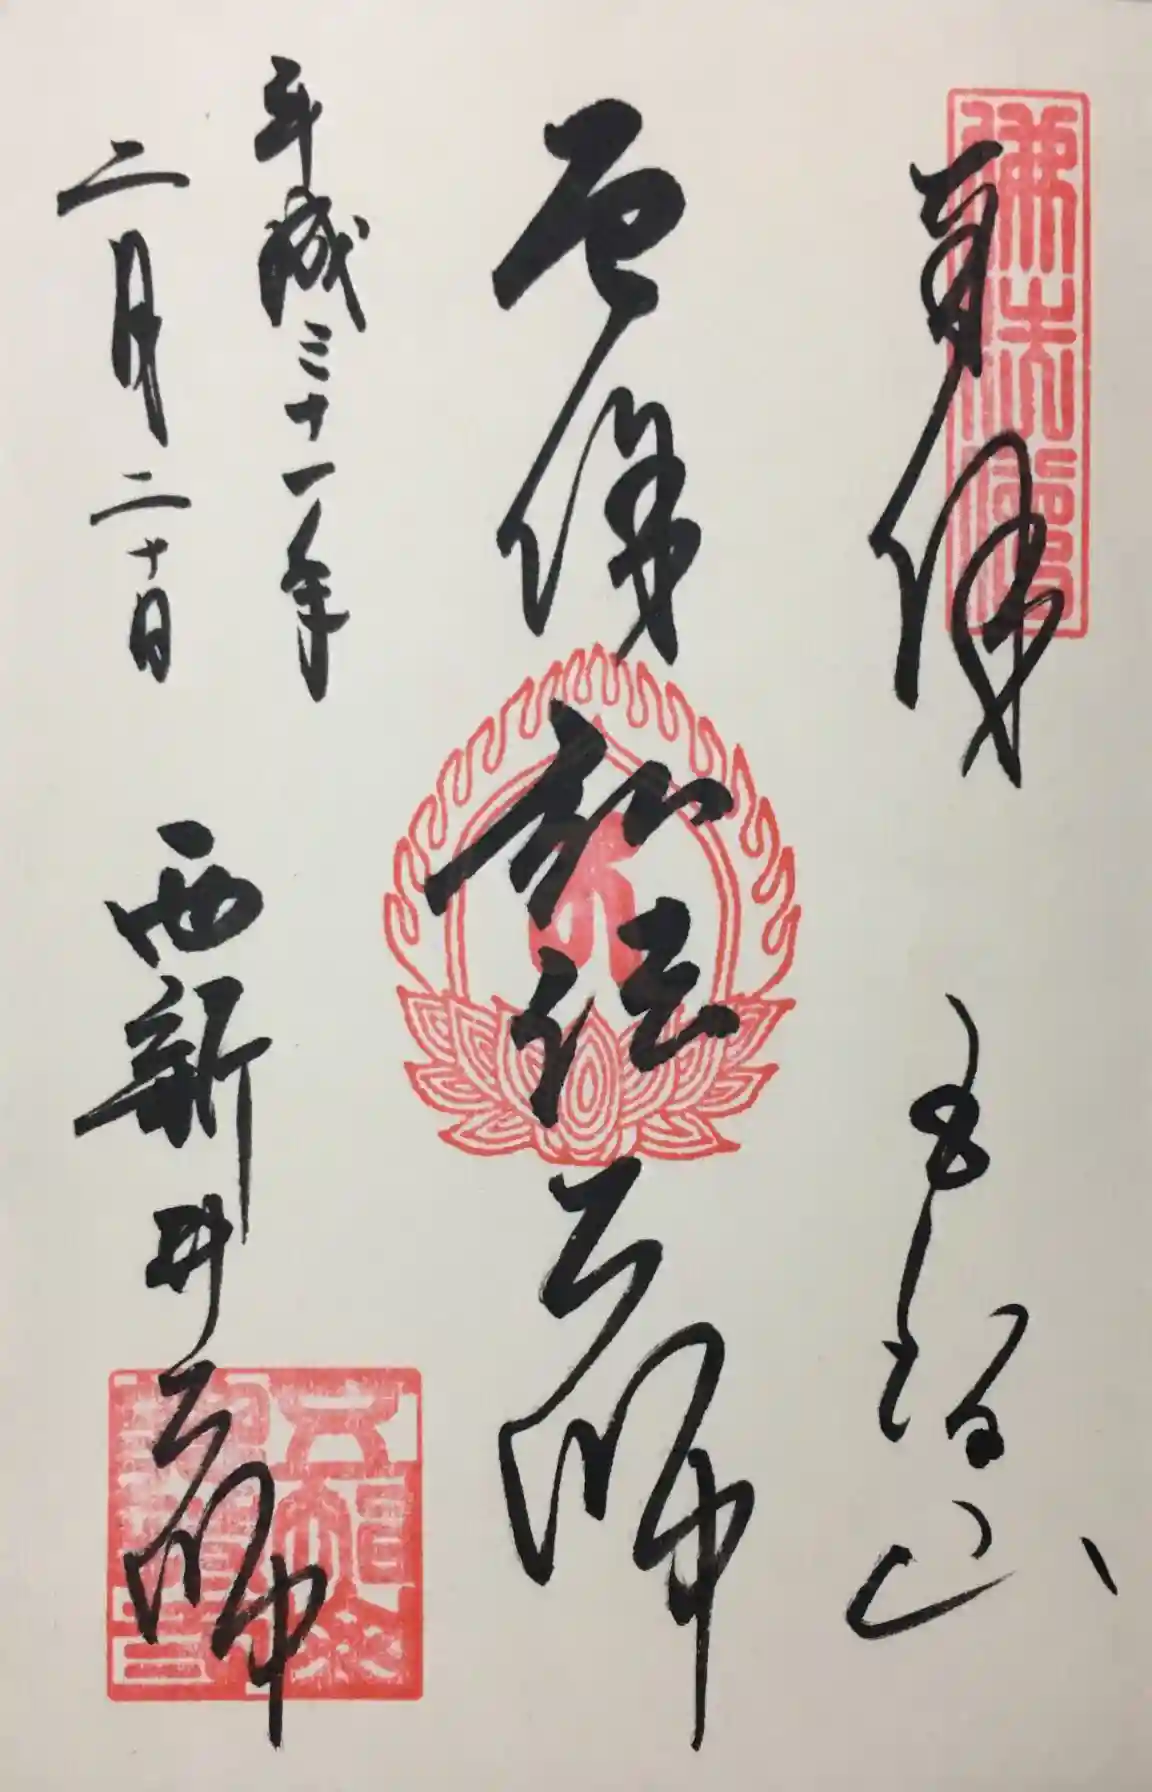 奉拝 五智山
厄除 弘法大師
平成三十一年
二月二十日
西新井大師